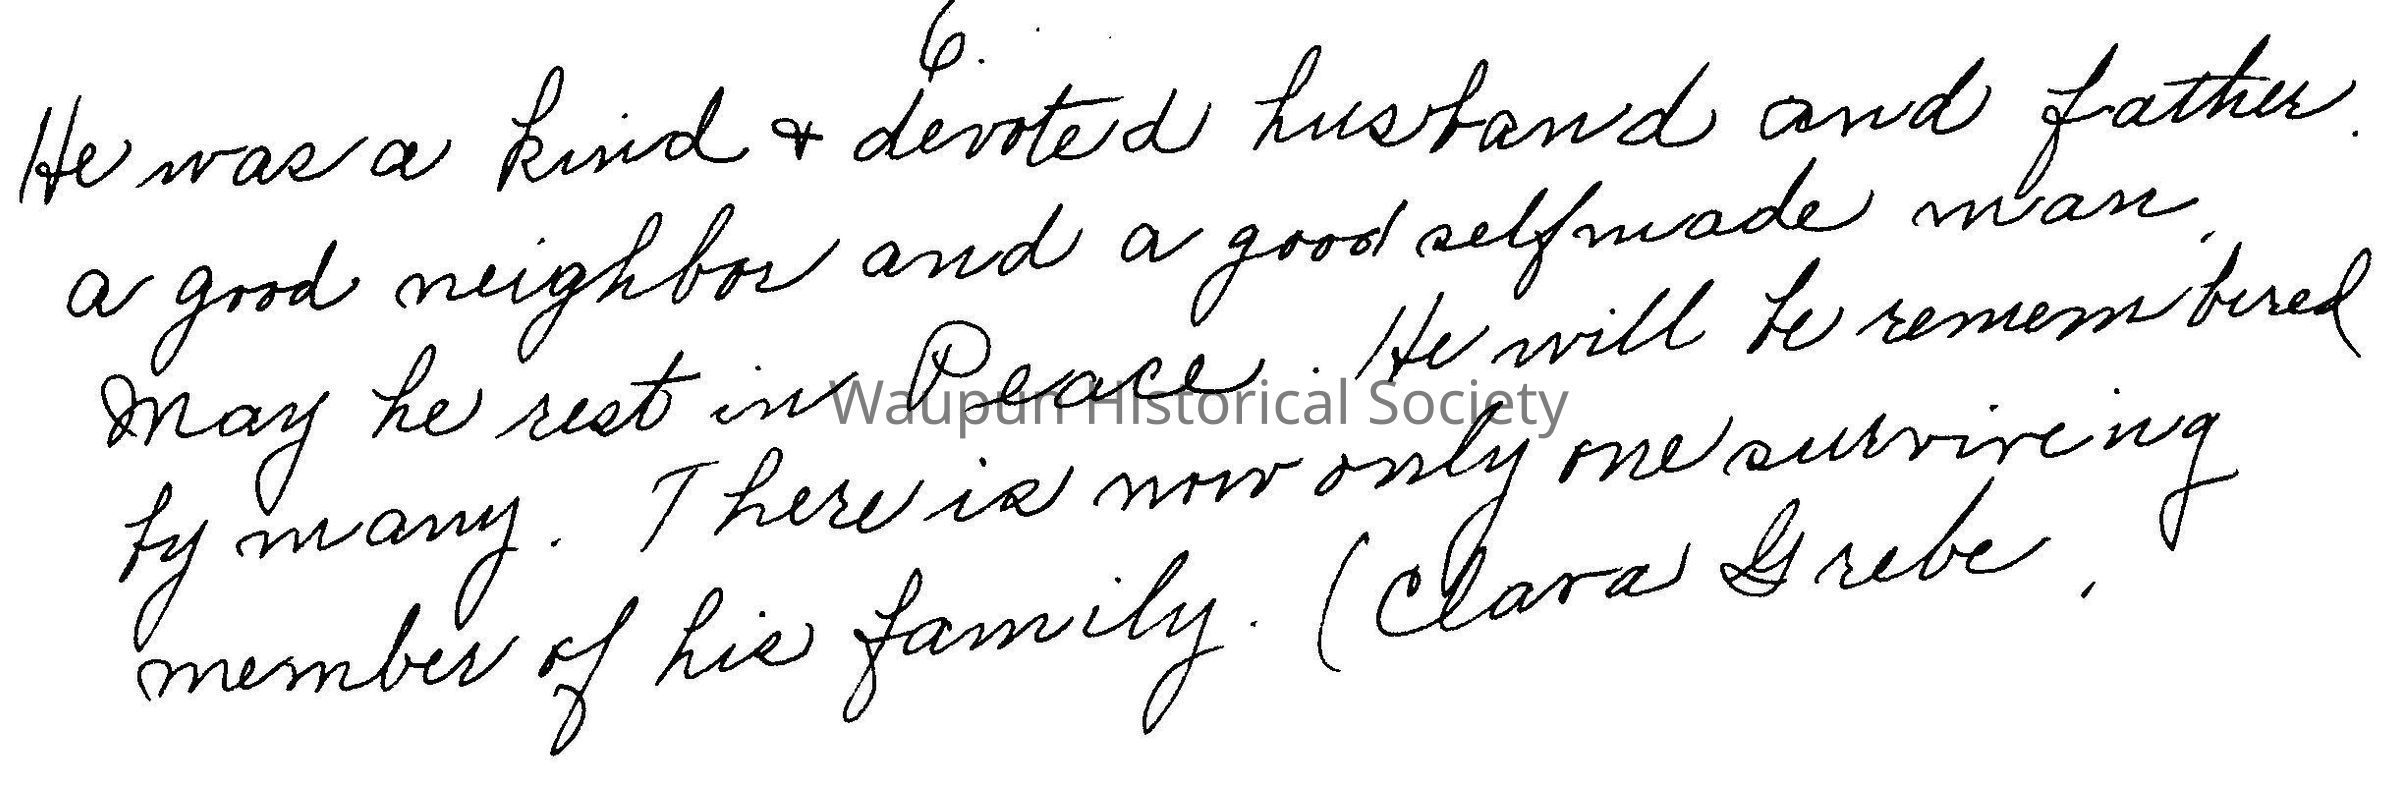 6.
He was a kind & devoted husband and father.
a good neighbor and a good selfmade man.
May he rest in Peace. He will be remembered
by many. There is now only one surviving
member of his family. (Clara Grebe,
Waupun Historical Society